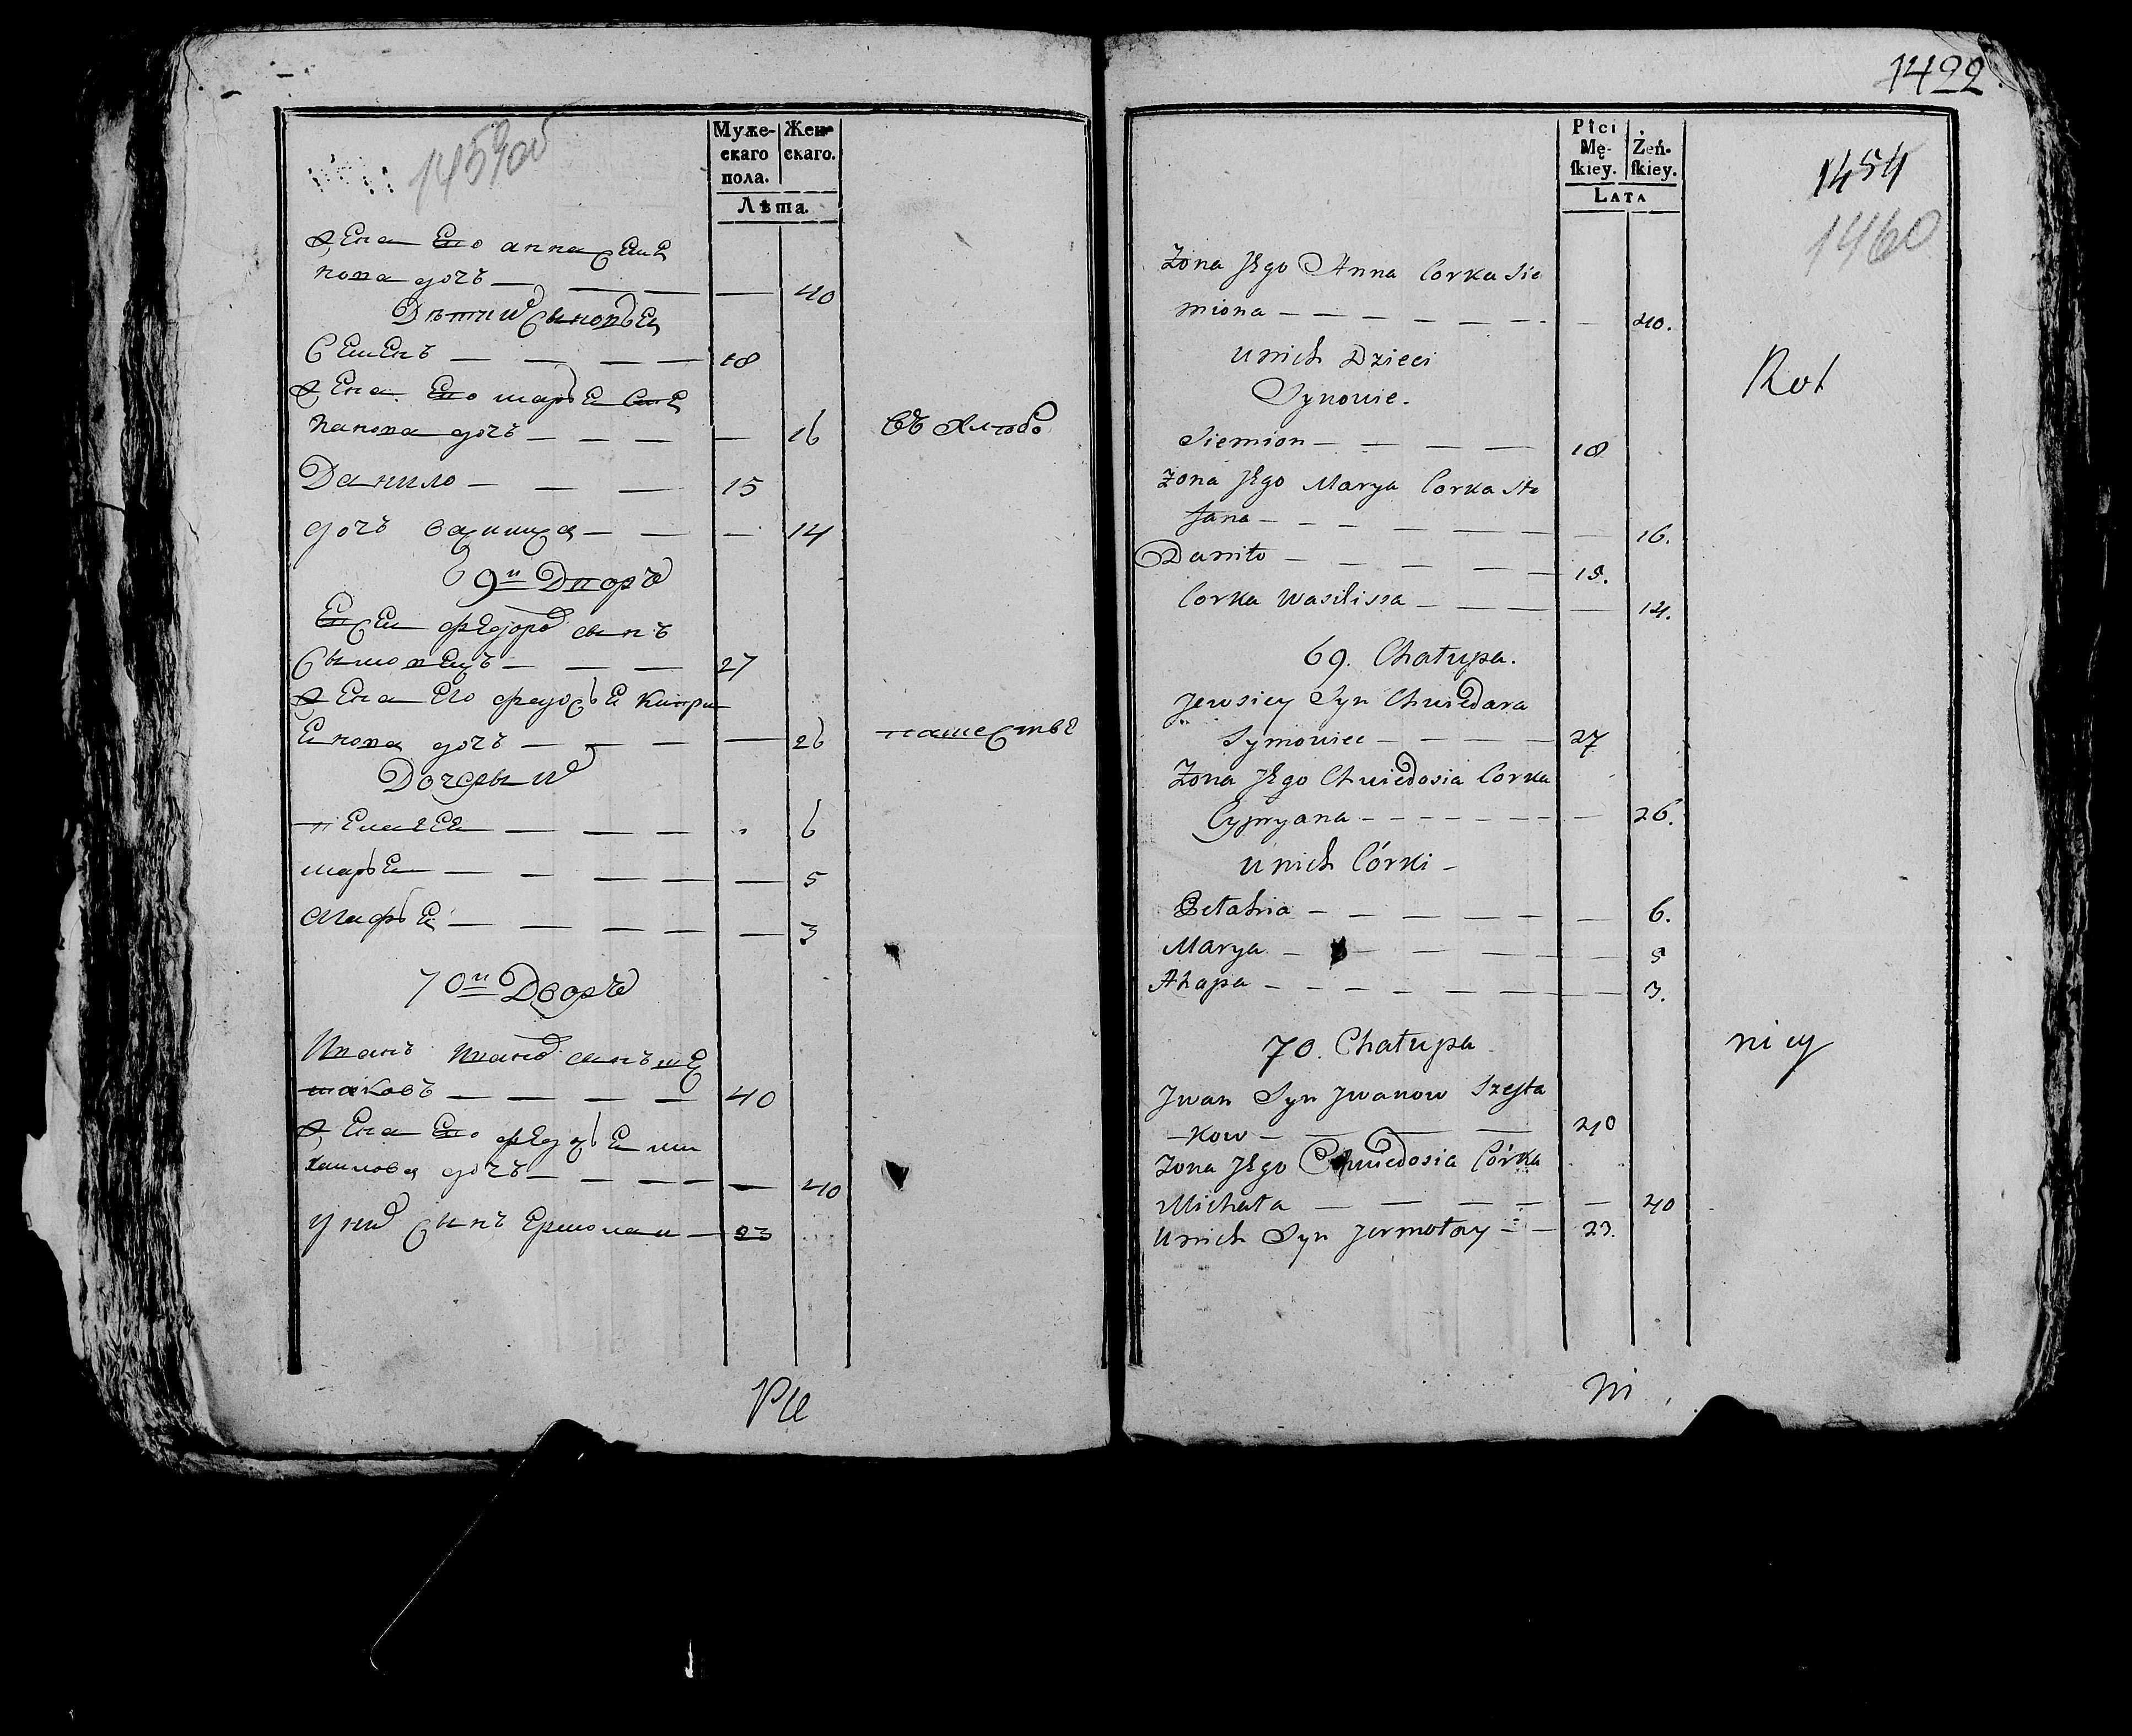 1459об
Муже-
скаго
пола.
Жен-
скаго.
Лѣта.
жена Его анна Семе
нова дочь — — — — 40
Дѣти Сыновья
Семенъ — — — — 18
жена Его марья Сте
панова дочь — — — — 16 въ Хлѣбо
Данило — — — 15
дочь василиса — — — 14
69й Дворъ
Евсей федоров сынъ
Сымонецъ — — — 27
жена Его федосья Кипри
Енова дочь — — — — 26 пашестве
Дочери
пелагея — — — 6
марья — — — — — 5
Агафья — — — — — 3
70й Дворъ
Иванъ Иванов сынъ ше
стаковъ — — — — 40
жена Его федосья ми
хаилова дочь — — — — — 40
у них сынъ Ермолаи — 23
1422
Płci
Mę-
ſkiey.
Żeń-
ſkiey.
LATA
1454
1460
Żona Jego Anna Corka Sie
miona — — — — — — — 40.
u nich Dzieci
Synowie.
Rot
Siemion — — — — 18
Żona Jego Marya Corka Ste
fana — — — — — — — 16.
Daniło — — — — — 15.
Corka Wasilissa — — — — 14.
69. Chałupa.
Jewsiey Syn Chwiedara
Symowiec — — — — 27
Żona Jego Chwiedosia Corka
Cypryana — — — — — — — 26.
u nich Córki —
Pełahia — — — — — — 6.
Marya — — — — — — 5
Ahapa — — — — — — — — 3.
70. Chałupa
nicy
Jwan Syn Jwanow Szesta
-kow — — — — 40
Żona Jego Chwiedosia Córka
Michała — — — — — — 40
u nich Syn Jermołay — — 23.